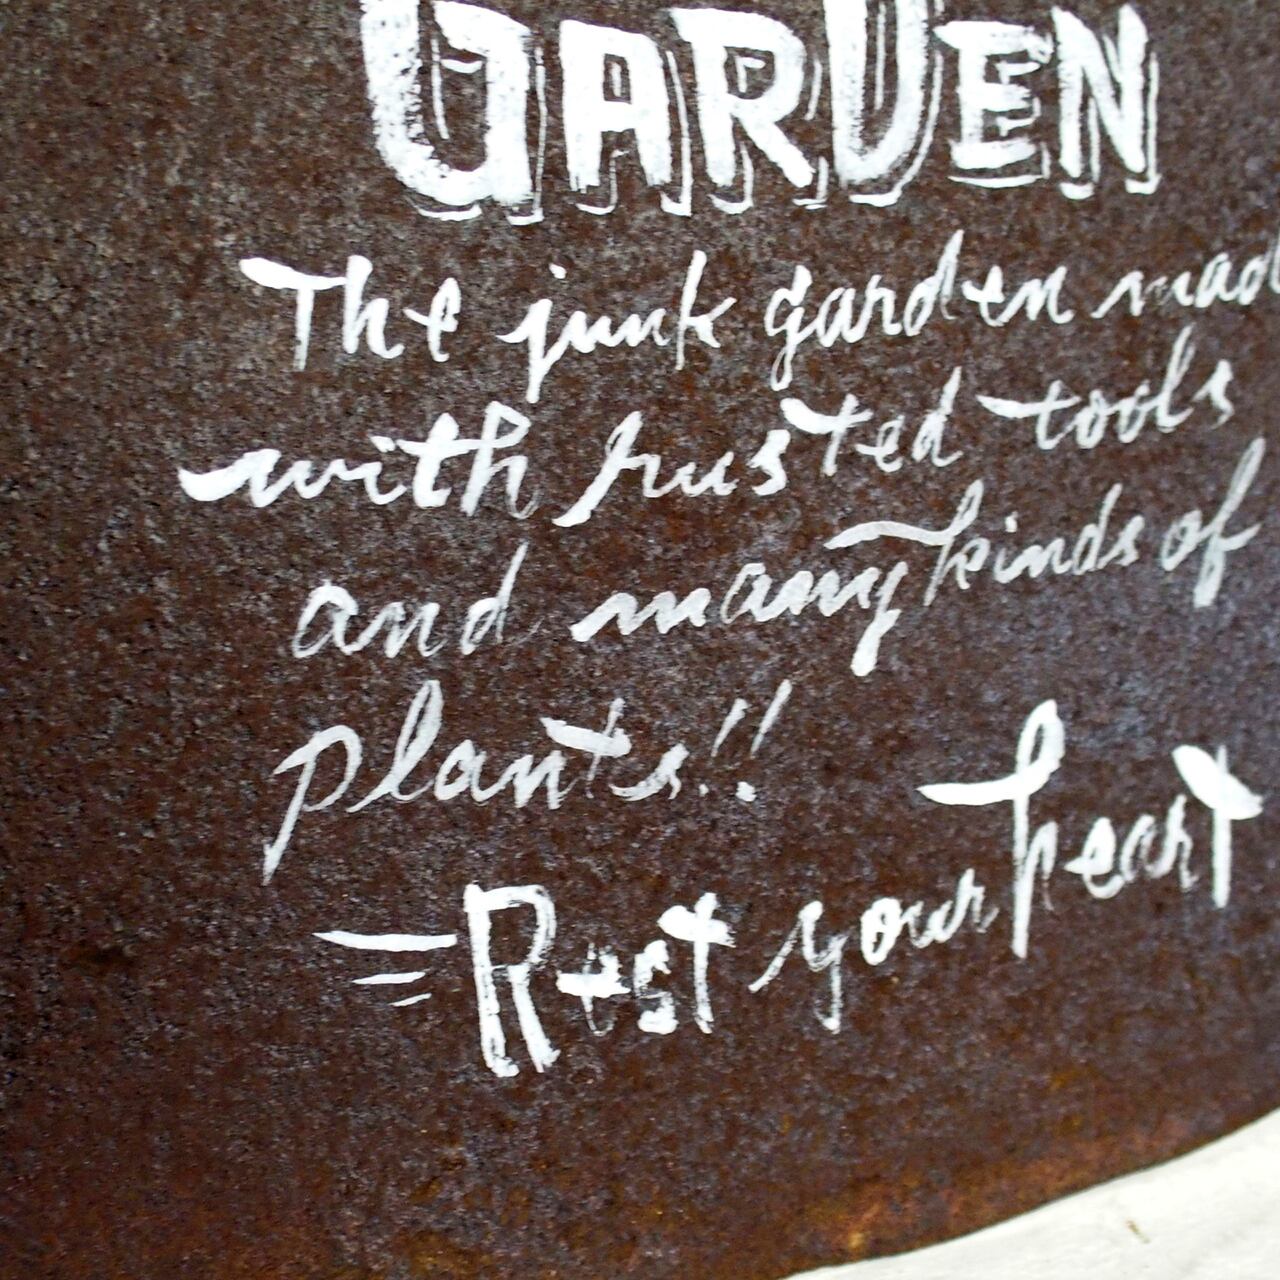 GARDEN
The junk garden mad
with rusted tools
and many kinds of
plants!!
Rest your heart